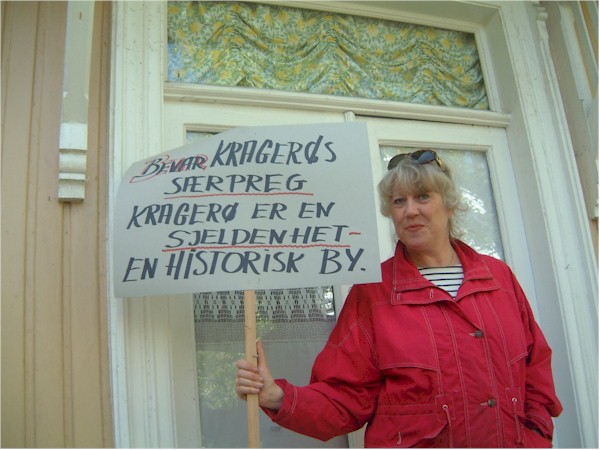 BEVAR KRAGERØs
SÆRPREG
KRAGERØ ER EN
SJELDENHET-
EN HISTORISK BY.